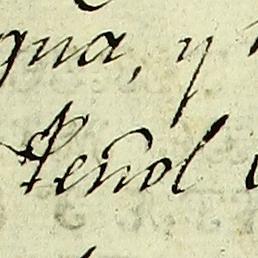 gua, y
Peñol